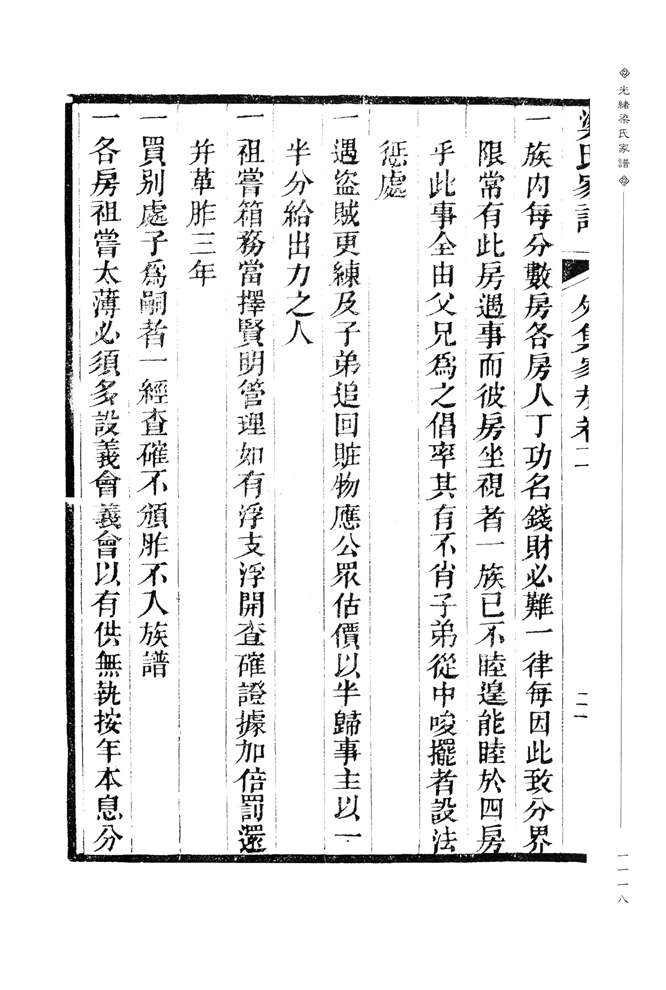 光緒梁氏家譜
一一一八
梁氏家譜 外集家規卷二 二一
一族內每分數房各房人丁功名錢財必難一律每因此致分界
限常有此房遇事而彼房坐視者一族已不睦遑能睦於四房
乎此事全由父兄爲之倡率其有不肖子弟從中唆擺者設法
懲處
一遇盜賊更練及子弟追回賍物應公眾估價以半歸事主以一
半分給出力之人
一祖嘗箱務當擇賢明管理如有浮支浮開查確證據加倍罰還
并革胙三年
一買別處子爲嗣者一經查確不頒胙不入族譜
一各房祖嘗太薄必須多設義會義會以有供無執按年本息分